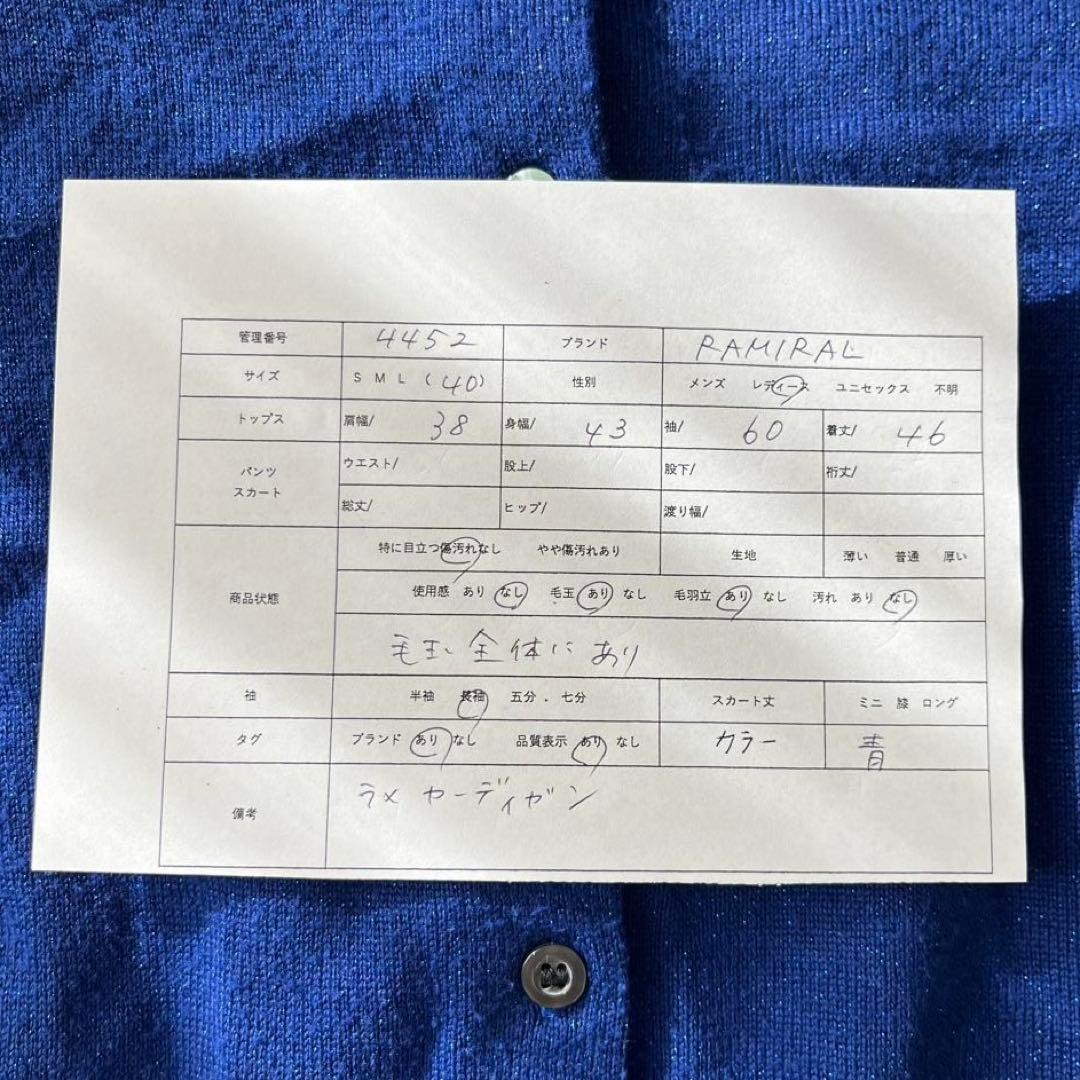 管理番号 4452 ブランド RAMIRAL
サイズ S M L (40) 性別 メンズ レディース ユニセックス 不明
トップス 肩幅/ 38 身幅/ 43 袖/ 60 着丈/ 46
パンツ スカート ウエスト/ 股上/ 股下/ 裄丈/
総丈/ ヒップ/ 渡り幅/
商品状態 特に目立つ傷汚れなし やや傷汚れあり 生地 薄い 普通 厚い
使用感 あり なし 毛玉 あり なし 毛羽立 あり なし 汚れ あり なし
毛玉 全体に あり
袖 半袖 長袖 五分.七分 スカート丈 ミニ 膝 ロング
タグ ブランド あり なし 品質表示 あり なし カラー 青
備考 ラメ カーディガン